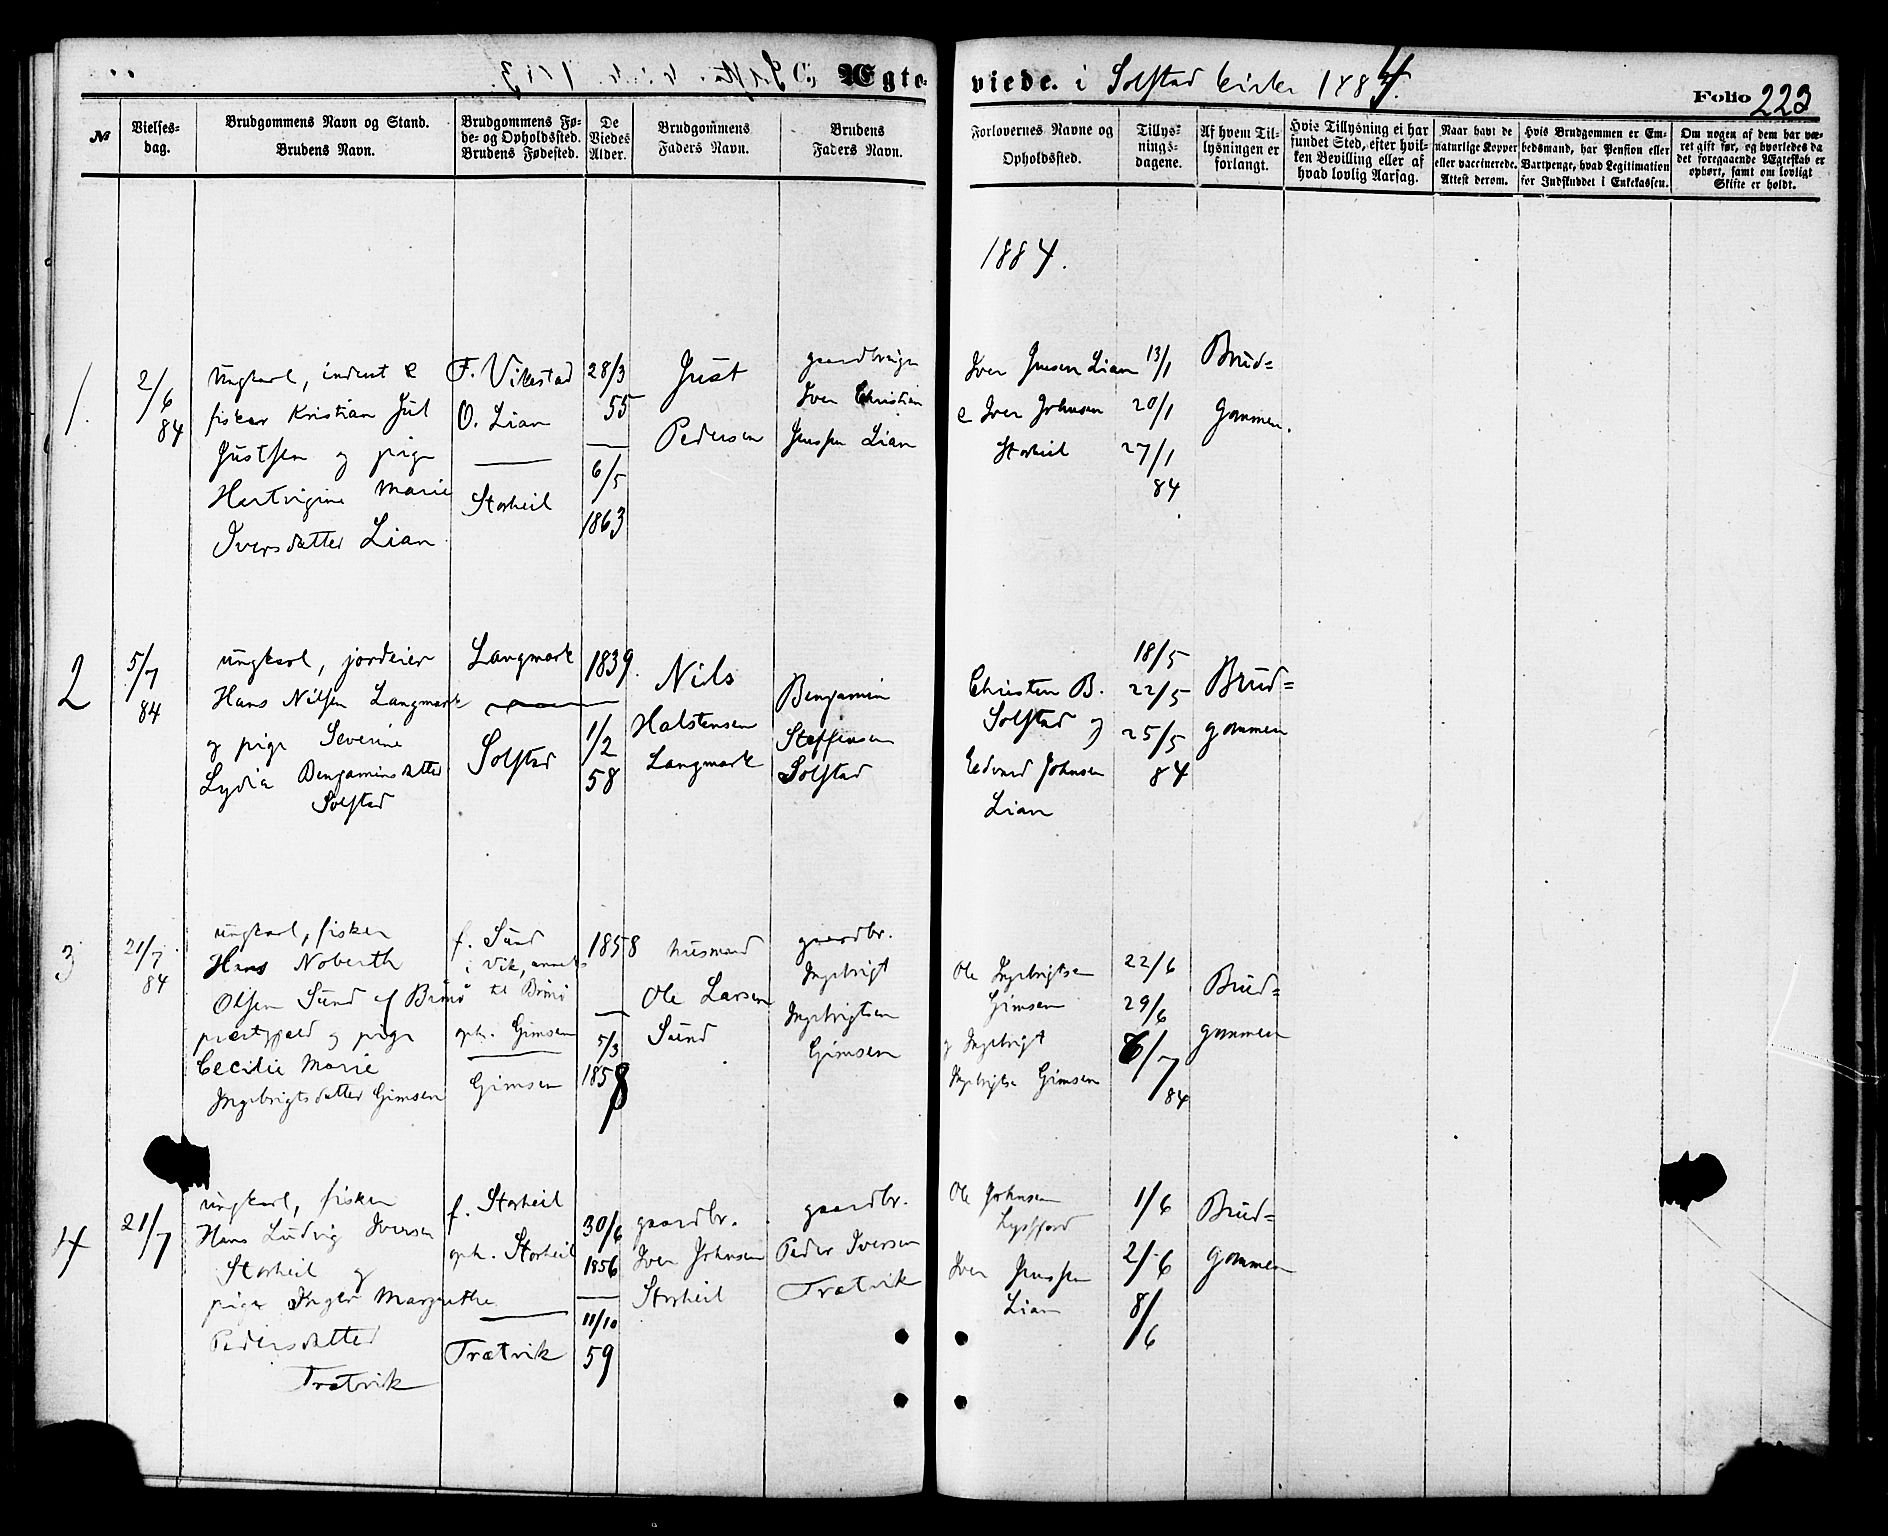 C, Ægte-
viede. i Solstad kirke 1884.
Folio 223
№
Vielses-
dag.
Brudgommens Navn og Stand.
Brudens Navn.
Brudgommens Fø-
de- og Opholdssted.
Brudens Fødested.
De
Viedes
Alder.
Brudgommens
Faders Navn.
Brudens
Faders Navn.
Forlovernes Navne og
Opholdssted.
Tillys-
nings-
dagene.
Af hvem Til-
lysningen er
forlangt.
Hvis Tillysning ei har
fundet Sted, efter hvil-
ken Bevilling eller af
hvad lovlig Aarsag.
Naar havt de
naturlige Kopper
eller vaccinerede.
Attest derom.
Hvis Brudgommen er Em-
bedsmand, har Pension eller
Vartpenge, hvad Legitimation
for Indskuddet i Enkekassen.
Om nogen af dem har væ-
ret gift før, og hvorledes da
det foregaaende Ægteskab er
ophørt, samt om lovligt
Skifte er holdt.
1884.
1.
2/6
84
Ungkarl, inderst &
fisker Kristian Jul
Justsen og pige
Hartvigine Marie
Iversdatter Lian
F. Vikestad
O. Lian
Storheil
28/3
55
6/5
1863
Just
Pedersen
gaardbruger
Iver Christian
Jenssen Lian
Iver Jensen Lian
& Iver Johnsen
Storheil
13/1
20/1
27/1
84
Brud=
gommen.
2
5/7
84
ungkarl, jordeier
Hans Nilsen Langmark
og pige Severine
Lydia Benjaminsdatter
Solstad
Langmark
Solstad
1839.
1/2
58
Nils
Halstensen
Langmark
Benjamin
Steffensen
Solstad
Christen B.
Solstad og
Edvard Johnsen
Lian
18/5
22/5
25/5
84
Brud=
gommen
3
21/7
84
ungkarl, fisker
Hans Noberth
Olsen Sund af Brønø
præstgjeld og pige
Cecilie Marie
Ingebrigtsdatter Gimsen
f. Sund
i Vik, annex
til Brønø
oph. Gimsen
Gimsen
1858
5/3
1858
husmand
Ole Larsen
Sund
gaardbr.
Ingebrigt
Ingebrigtsen
Gimsen
Ole Ingebrigtsen
Gimsen
og Ingebrigt
Ingebrigts. Gimsen
22/6
29/6
6/7
84
Brud=
gommen
4
21/7
ungkarl, fisker
Hans Ludvig Iversen
Storheil og
pige Inger Margrethe
Pedersdatter
Trætvik
f. Storheil
oph. Storheil
Trætvik
30/6
1856
11/10
59
gaardbr.
Iver Johnsen
Storheil
gaardbr.
Peder Iversen
Trætvik
Ole Johnsen
Lysfjord
Iver Jenssen
Lian
1/6
2/6
8/6
Brud=
gommen